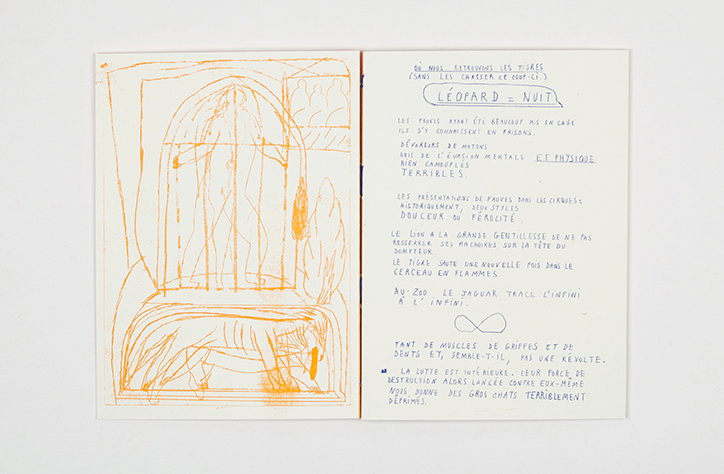 OÙ NOUS RETROUVONS LES TIGRES
(SANS LES CHASSER CE COUP-CI.)
LÉOPARD = NUIT
LES FAUVES AYANT ÉTÉ BEAUCOUP MIS EN CAGE
ILS S'Y CONNAISSENT EN PRISONS.
DÉVOREURS DE MATONS
ROIS DE L'ÉVASION MENTALE ET PHYSIQUE
BIEN CAMOUFLÉS
TERRIBLES.
LES PRÉSENTATIONS DE FAUVES DANS LES CIRQUES:
HISTORIQUEMENT, DEUX STYLES
DOUCEUR OU FÉROCITÉ.
LE LION A LA GRANDE GENTILLESSE DE NE PAS
RESSERRER SES MACHOIRES SUR LA TÊTE DU
DOMPTEUR.
LE TIGRE SAUTE UNE NOUVELLE FOIS DANS LE
CERCEAU EN FLAMMES.
AU ZOO LE JAGUAR TRACE L'INFINI
À L'INFINI.
TANT DE MUSCLES DE GRIFFES ET DE
DENTS ET, SEMBLE-T-IL, PAS UNE RÉVOLTE.
LA LUTTE EST INTÉRIEURE. LEUR FORCE DE
DESTRUCTION ALORS LANCÉE CONTRE EUX-MÊME
NOUS DONNE DES GROS CHATS TERRIBLEMENT
DÉPRIMÉS.